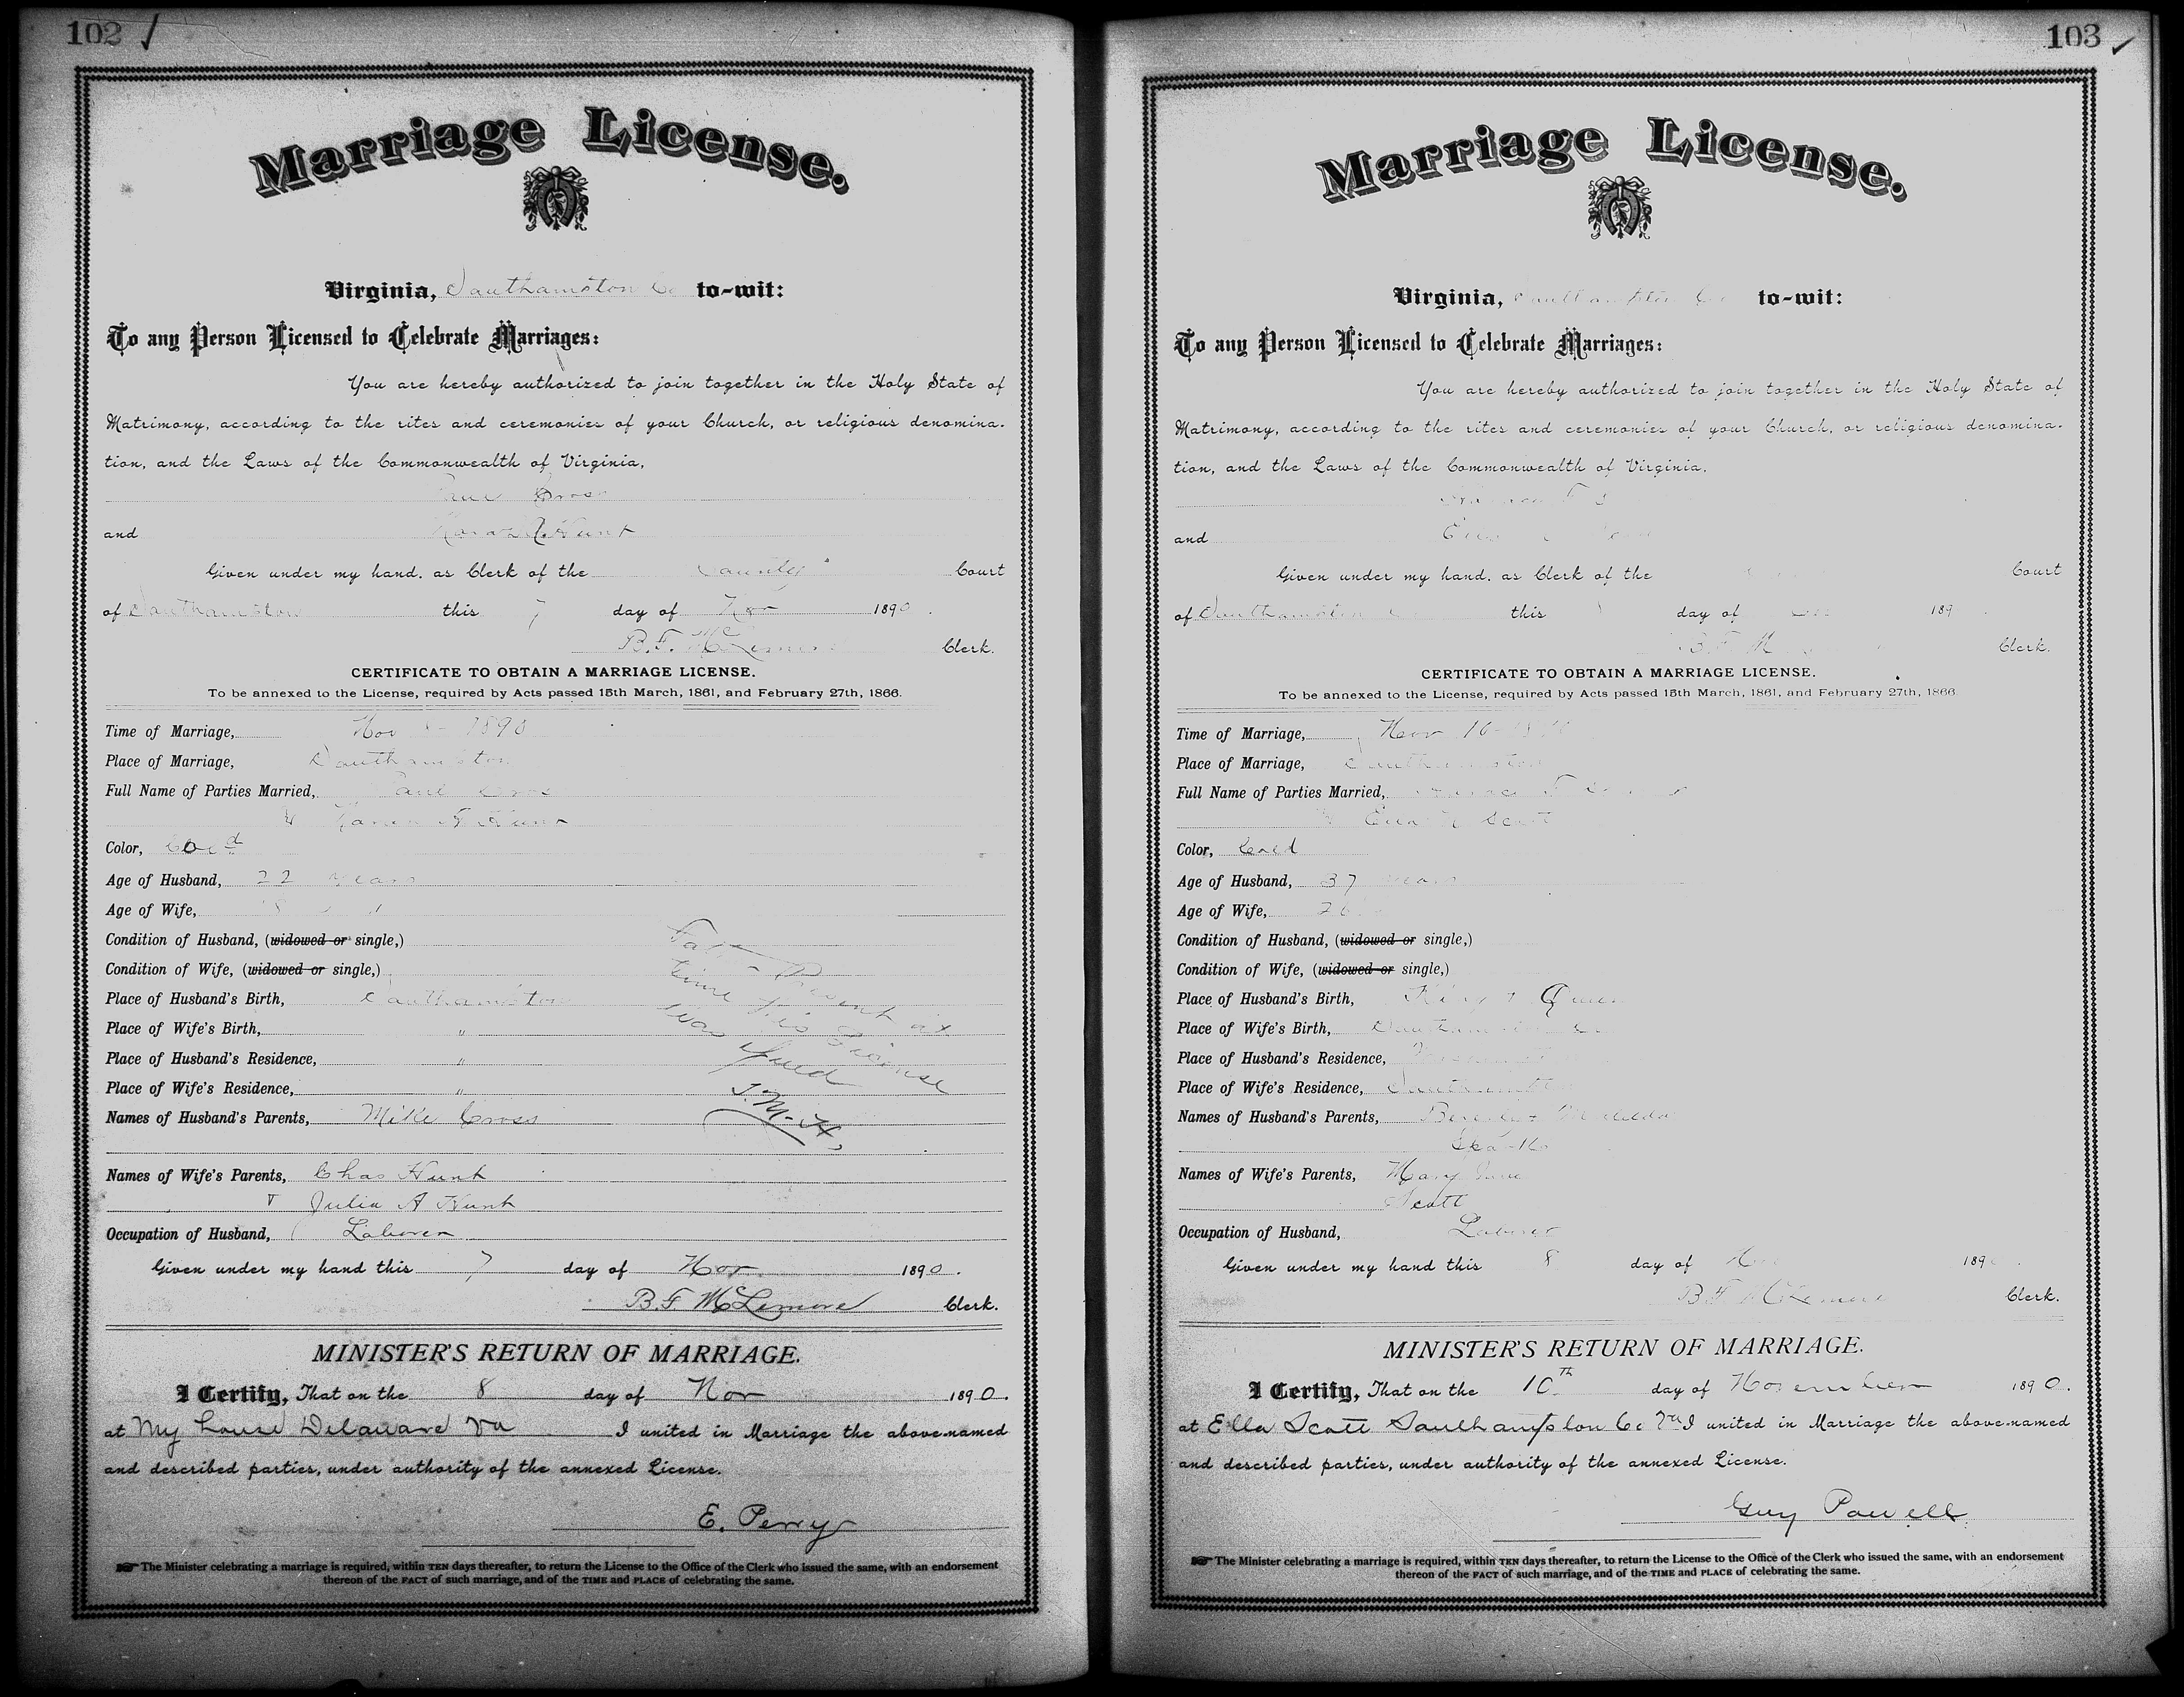 102
Marriage License.
Virginia, Southampton Co to-wit:
To any Person Licensed to Celebrate Marriages:
You are hereby authorized to join together in the Holy State of
Matrimony, according to the rites and ceremonies of your Church, or religious denomina-
tion, and the Laws of the Commonwealth of Virginia,
Paul Cross
and Hunt
Given under my hand, as Clerk of the County Court
of Southampton this 7 day of Nov 1890.
B.F. McLemore Clerk.
CERTIFICATE TO OBTAIN A MARRIAGE LICENSE.
To be annexed to the License, required by Acts passed 15th March, 1861, and February 27th, 1866.
Time of Marriage, Nov 1890
Place of Marriage, Southampton
Full Name of Parties Married, Paul Cross
& Hunt
Color, Cold
Age of Husband, 22 years
Age of Wife, 18
Condition of Husband, (widowed or single,)
Condition of Wife, (widowed or single,)
Place of Husband's Birth, Southampton
Place of Wife's Birth, "
Place of Husband's Residence, "
Place of Wife's Residence, "
Names of Husband's Parents, Mike Cross
Present at
time this License
was issued
J.M.H.
Names of Wife's Parents, Chas Hunt
& Julia A Hunt
Occupation of Husband, Laborer
Given under my hand this 7 day of Nov 1890.
B.F McLemore Clerk.
MINISTER'S RETURN OF MARRIAGE.
I Certify, That on the 8 day of Nov 1890.
at My house Delaware Va I united in Marriage the above-named
and described parties, under authority of the annexed License.
E. Perry
☞ The Minister celebrating a marriage is required, within TEN days thereafter, to return the License to the Office of the Clerk who issued the same, with an endorsement
thereon of the FACT of such marriage, and of the TIME and PLACE of celebrating the same.
103
Marriage License.
Virginia, Southampton Co to-wit:
To any Person Licensed to Celebrate Marriages:
You are hereby authorized to join together in the Holy State of
Matrimony, according to the rites and ceremonies of your Church, or religious denomina-
tion, and the Laws of the Commonwealth of Virginia,
and
Given under my hand, as Clerk of the Court
of Southampton this day of 189
B.F. M Clerk.
CERTIFICATE TO OBTAIN A MARRIAGE LICENSE.
To be annexed to the License, required by Acts passed 15th March, 1861, and February 27th, 1866.
Time of Marriage, Nov 10
Place of Marriage, Southampton
Full Name of Parties Married,
Scott
Color, Cold
Age of Husband, 37 years
Age of Wife, 26
Condition of Husband, (widowed or single,)
Condition of Wife, (widowed or single,)
Place of Husband's Birth, King & Queen
Place of Wife's Birth, Southampton Co
Place of Husband's Residence,
Place of Wife's Residence, Southampton
Names of Husband's Parents,
Names of Wife's Parents, Mary Jane
Scott
Occupation of Husband, Laborer
Given under my hand this 8 day of 189
B F McLemore Clerk.
MINISTER'S RETURN OF MARRIAGE.
I Certify, That on the 10th day of November 1890.
at Ella Scott Southampton Co Va I united in Marriage the above-named
and described parties, under authority of the annexed License.
Guy Powell
☞ The Minister celebrating a marriage is required, within TEN days thereafter, to return the License to the Office of the Clerk who issued the same, with an endorsement
thereon of the FACT of such marriage, and of the TIME and PLACE of celebrating the same.